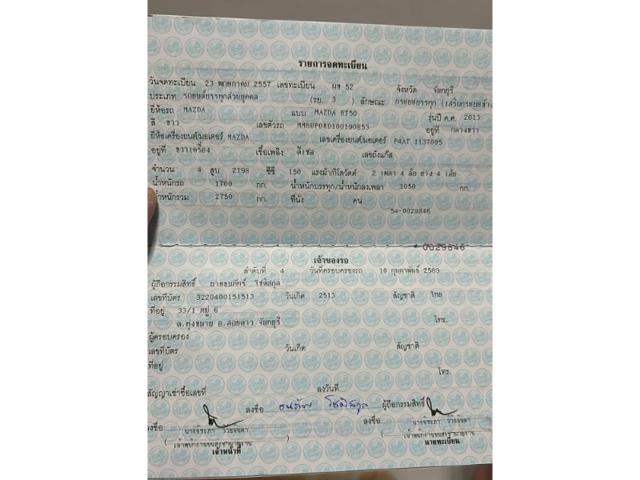 รายการจดทะเบียน
วันจดทะเบียน 23 พฤษภาคม 2557 เลขทะเบียน ผข 52 จังหวัด จันทบุรี
ประเภท รถยนต์บรรทุกส่วนบุคคล (รย. 3 ) ลักษณะ กระบะบรรทุก
ยี่ห้อรถ MAZDA แบบ MAZDA BT50 รุ่นปี ค.ศ. 2013
สี ขาว เลขตัวรถ อยู่ที่ กลางขวา
ยี่ห้อเครื่องยนต์/มอเตอร์ MAZDA เลขเครื่องยนต์/มอเตอร์ P4AT 1137005
อยู่ที่ ขวาเครื่อง เชื้อเพลิง ดีเซล เลขถังแก๊ส
จำนวน 4 สูบ 2198 ซีซี 150 แรงม้า/กิโลวัตต์ 2 เพลา 4 ล้อ ยาง 4 เส้น
น้ำหนักรถ 1700 กก. น้ำหนักบรรทุก/น้ำหนักลงเพลา 1050 กก.
น้ำหนักรวม 2750 กก. ที่นั่ง คน
54-0029846
0029846
เจ้าของรถ
ลำดับที่ 4 วันที่ครอบครองรถ 10 กุมภาพันธ์
ผู้ถือกรรมสิทธิ์
เลขที่บัตร 3220400151513 วันเกิด 2513 สัญชาติ ไทย
ที่อยู่ 33/1 หมู่ 6
ต.ทุ่งขนาน อ.สอยดาว จันทบุรี โทร.
ผู้ครอบครอง
เลขที่บัตร วันเกิด สัญชาติ
ที่อยู่ โทร.
สัญญาเช่าซื้อเลขที่ ลงวันที่
ลงชื่อ ผู้ถือกรรมสิทธิ์
ลงชื่อ ลงชื่อ
เจ้าหน้าที่ นายทะเบียน